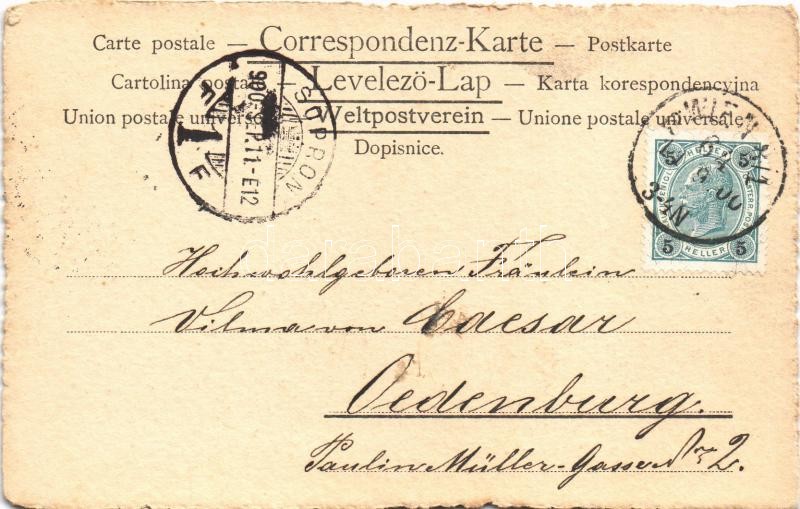 Carte postale — Correspondenz-Karte — Postkarte
Cartolina postale — Levelező-Lap — Karta korespondencyjna
Union postale universelle — Weltpostverein — Unione postale universale
Dopisnice.
SOPRON
900 SEP. 11. E12
F
WIEN
9 00
3-4N
5 HELLER 5
5 HELLER 5
Hochwohlgeboren Fräulein
Vilma von Caesar
Oedenburg.
Paulin Müller-Gasse Nr 2.
darabanth